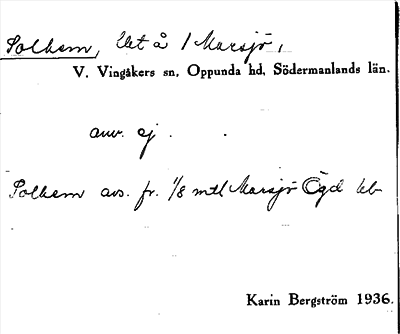 Solhem, lht å 1 Marsjö,
V. Vingåkers sn, Oppunda hd, Södermanlands län.
anv. ej.
Solhem avs. fr. 1/8 mtl Marsjö Ögd
Karin Bergström 1936.